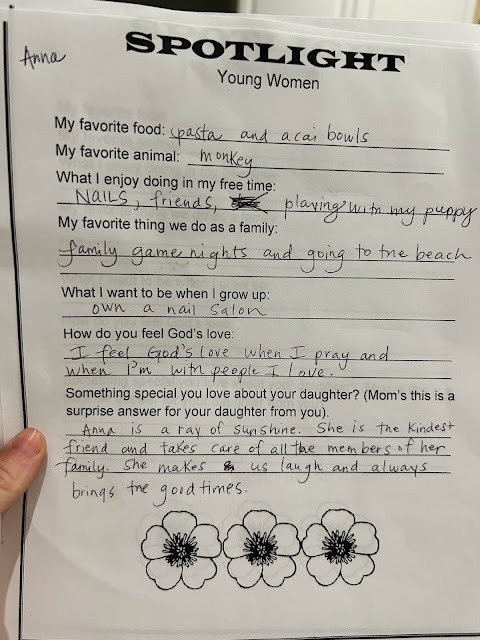 Anna
SPOTLIGHT
Young Women
My favorite food: pasta and acai bowls
My favorite animal: monkey
What I enjoy doing in my free time:
NAILS, friends, playing with my puppy
My favorite thing we do as a family:
family game nights and going to the beach
What I want to be when I grow up:
own a nail salon
How do you feel God's love:
I feel God's love when I pray and
when I'm with people I love.
Something special you love about your daughter? (Mom's this is a
surprise answer for your daughter from you).
Anna is a ray of sunshine. She is the kindest
friend and takes care of all the members of her
family. She makes us laugh and always
brings the good times.